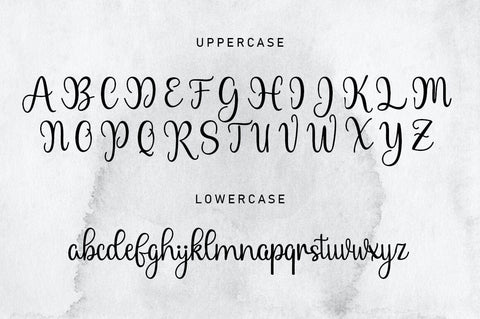 UPPERCASE
ABCDEFGHIJKLM
NOPQRSTUVWXYZ
LOWERCASE
abcdefghijklmnopqrstuvwxyz